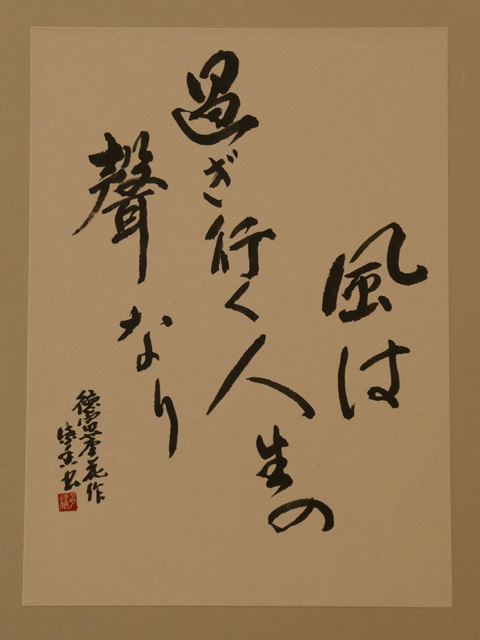 風は
過ぎ行く人生の
聲なり
徳冨蘆花作